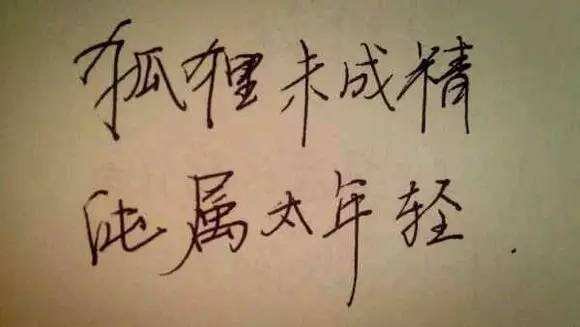 狐狸未成精
纯属太年轻.